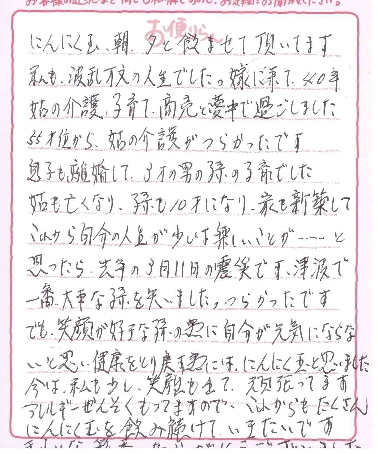 お便り
にんにく玉、朝、夕と飲ませて頂いてます
私も、波乱万丈の人生でした。嫁に来て、40年
姑の介護、子育て、商売と夢中で過ごしました
55才位から、姑の介護がつらかったです
息子も離婚して、3才の男の孫の子育でした
姑も亡くなり、孫も10才になり、家も新築して
これから自分の人生が少しは楽しいことが……と
思ったら、去年の3月11日の震災です、津波で
一番大事な孫を失いました。つらかったです
でも、笑顔が好きな孫の為に自分が元気にならな
いと思い、健康をとり戻す為には、にんにく玉と思いました
今は、私も少し、笑顔も出て、頑張ってます
アレルギーぜんそくもってますので、これからもたくさん
にんにく玉を飲み続けていきたいです